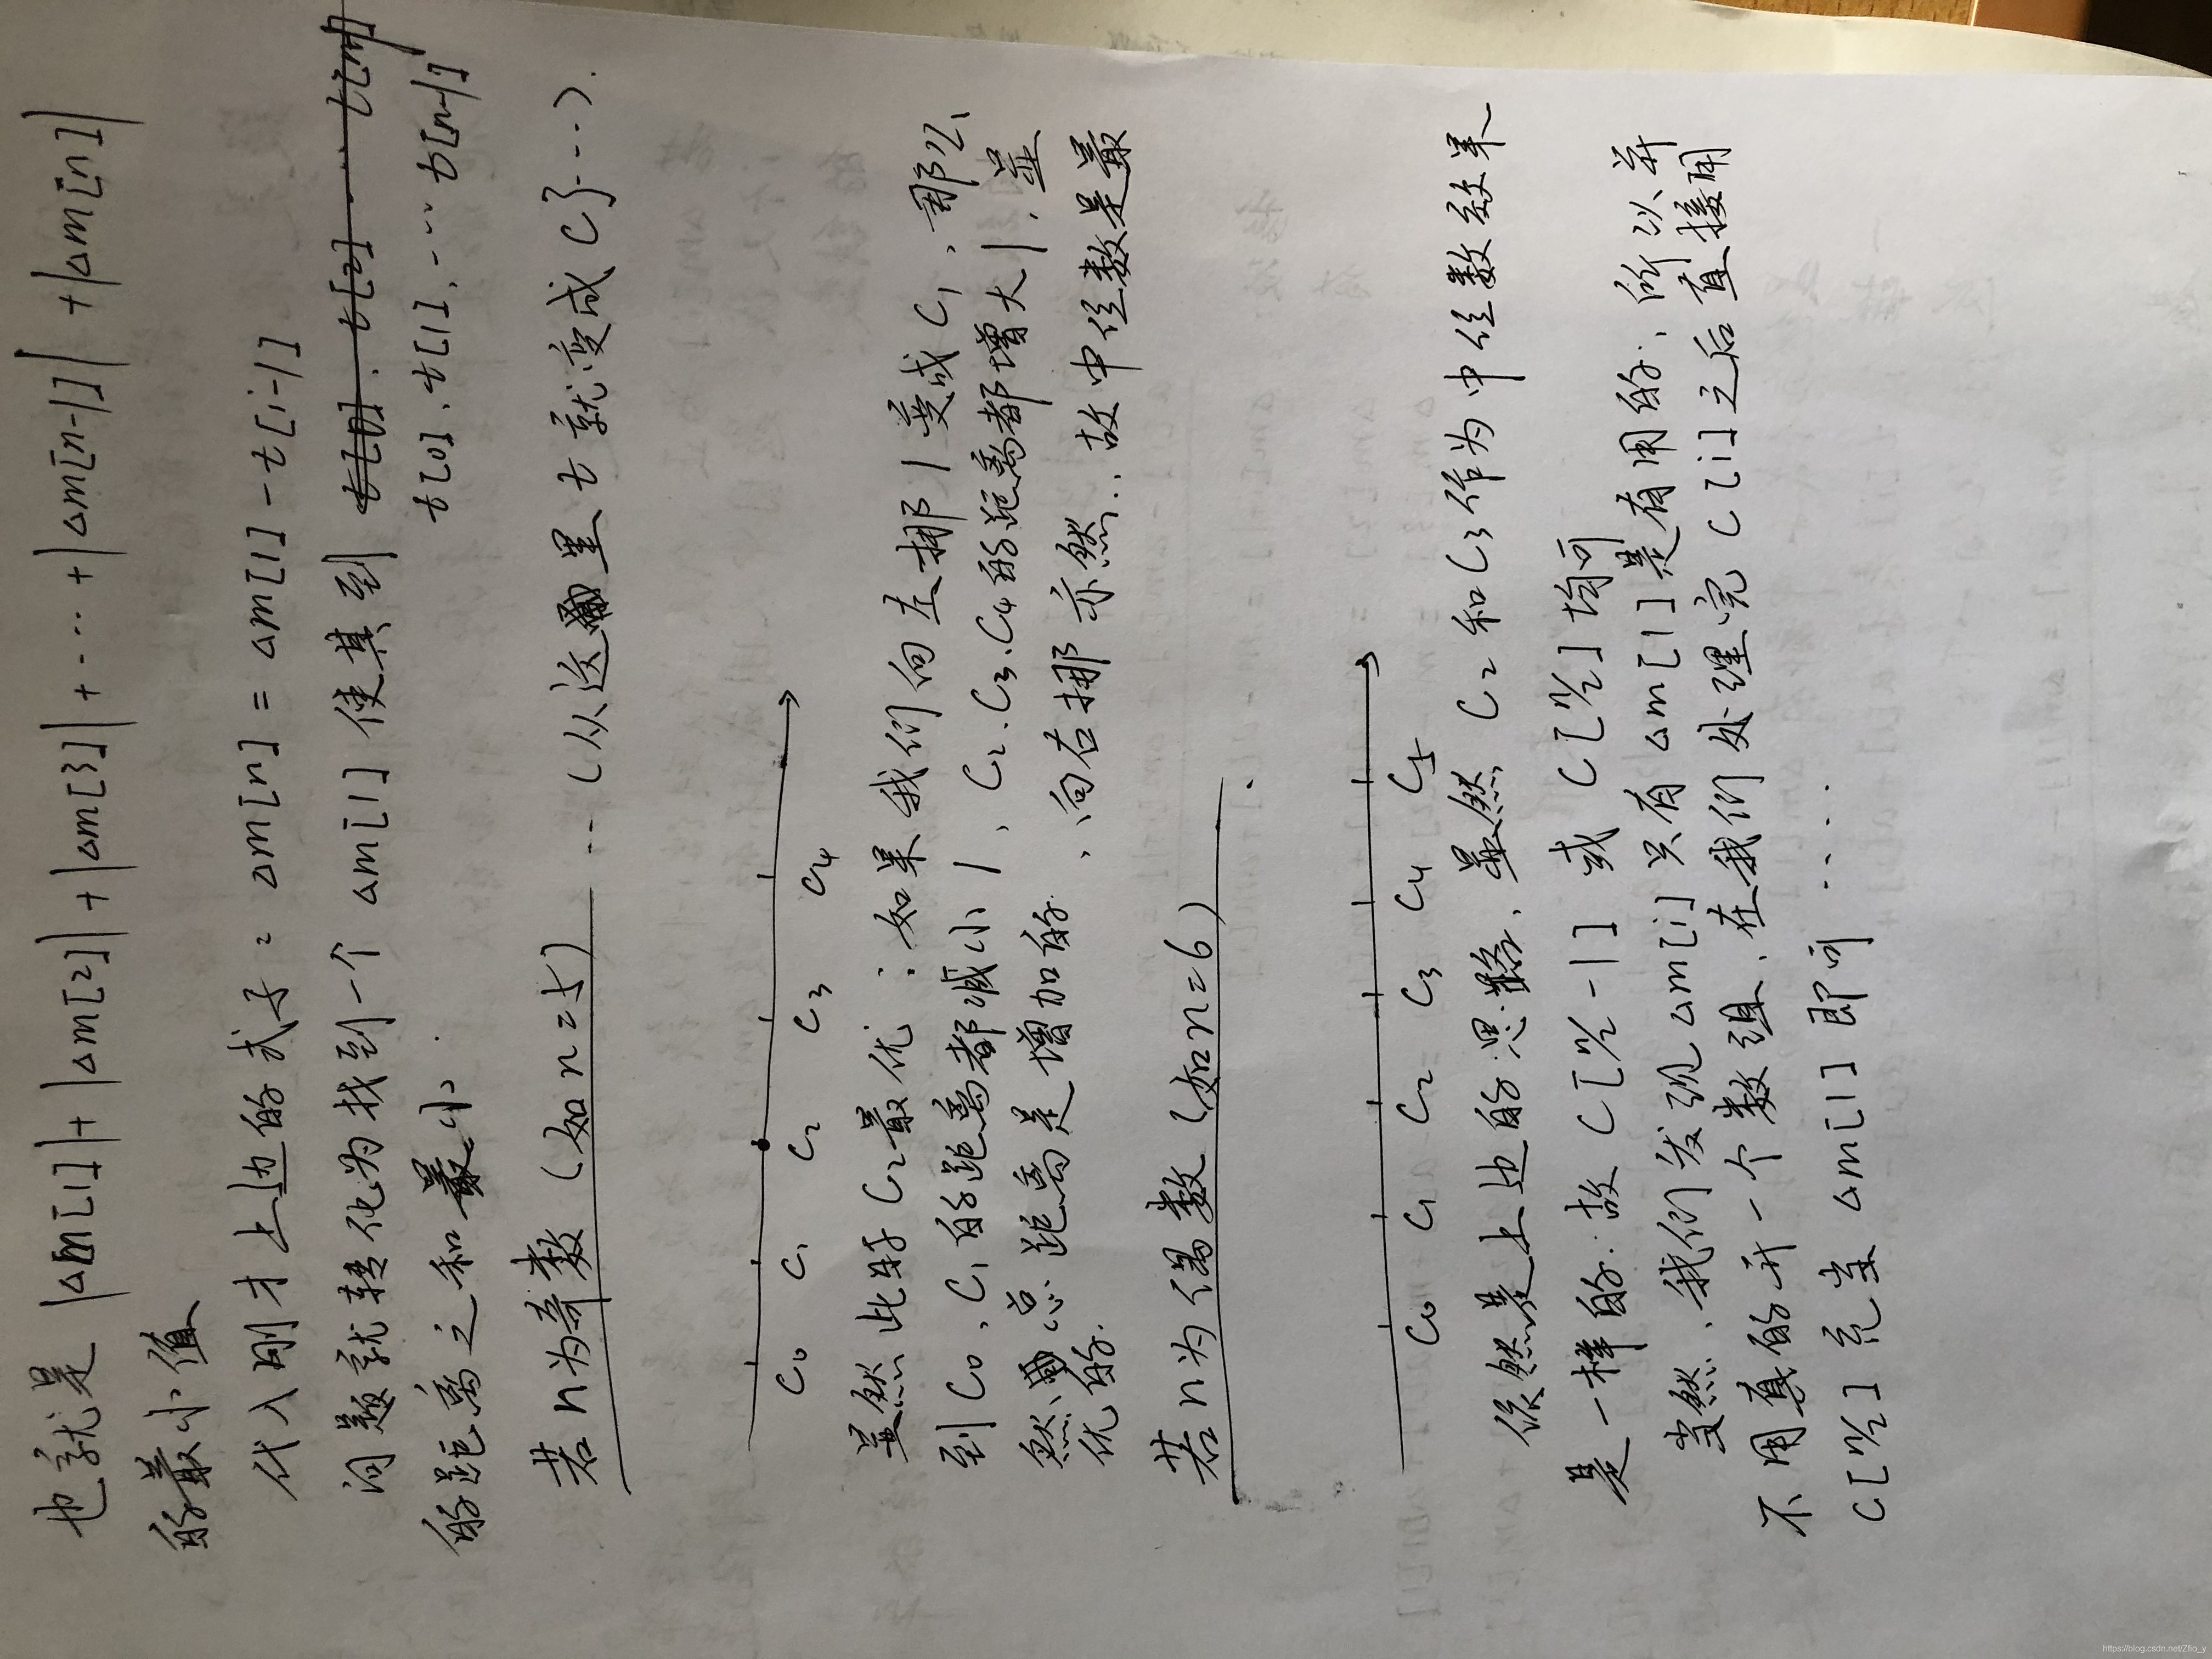 也就是 |△m[1]| + |△m[2]| + |△m[3]| + … + |△m[n-1]| + |△m[n]|
的最小值
代入刚才上边的式子：△m[n] = △m[1] - t[i-1]
问题就转化为找到一个 △m[1] 使其到 t[0]、t[1]、… t[n-1]
的距离之和最小.
若n为奇数（如n=5） … （从这里 t 就变成 C 了…）.
C0 C1 C2 C3 C4
显然此时 C2最优：如果我们向左挪1变成C1，那么
到C0、C1的距离都减小1、C2、C3、C4的距离都增大1，显
然总距离是增加的、向右挪亦然… 故中位数是最
优的.
若n为偶数（如n=6） .
C0 C1 C2 C3 C4 C5
依然是上边的思路，显然 C2和C3作为中位数效果
是一样的.故 C[n/2-1] 或 C[n/2] 均可
当然、我们发现△m[i] 只有 △m[1]是有用的、所以并
不用真的开一个数组、在我们处理完 C[i]之后直接用
C[n/2] 充当 △m[1] 即可 ….
https://blog.csdn.net/Zfio_y